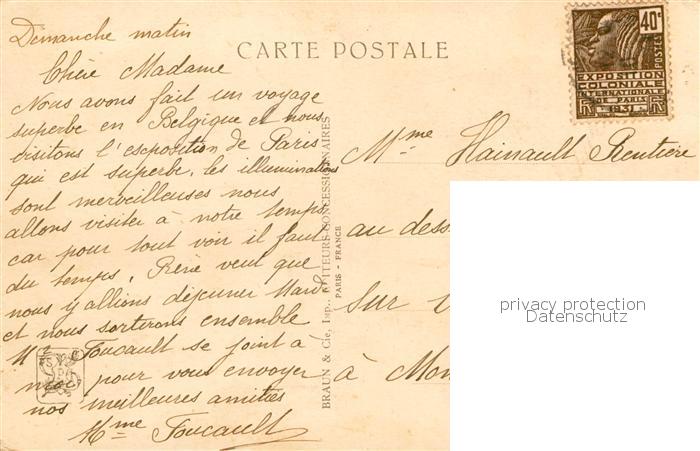 Demanche matin
CARTE POSTALE
Chère Madame
Nous avons fait un voyage
superbe en Belgique et nous
visitons l'exposition de Paris
qui est superbe, les illuminations
sont merveilleuses nous
allons visiter à notre temps,
car pour tout voir il faut
du temps. René veut que
nous y allions déjeuner Mardi
et nous sortirons ensemble
Foucault se joint à
pour vous envoyer
nos meilleures amitiés
Mme Foucault
BRAUN & Cie, Imp., ÉDITEURS-CONCESSIONNAIRES
PARIS - FRANCE
40c
POSTES
EXPOSITION
COLONIALE
INTERNATIONALE
DE PARIS
1931
Mme Hainault Rentière
au dess
sur
à Mon
privacy protection
Datenschutz